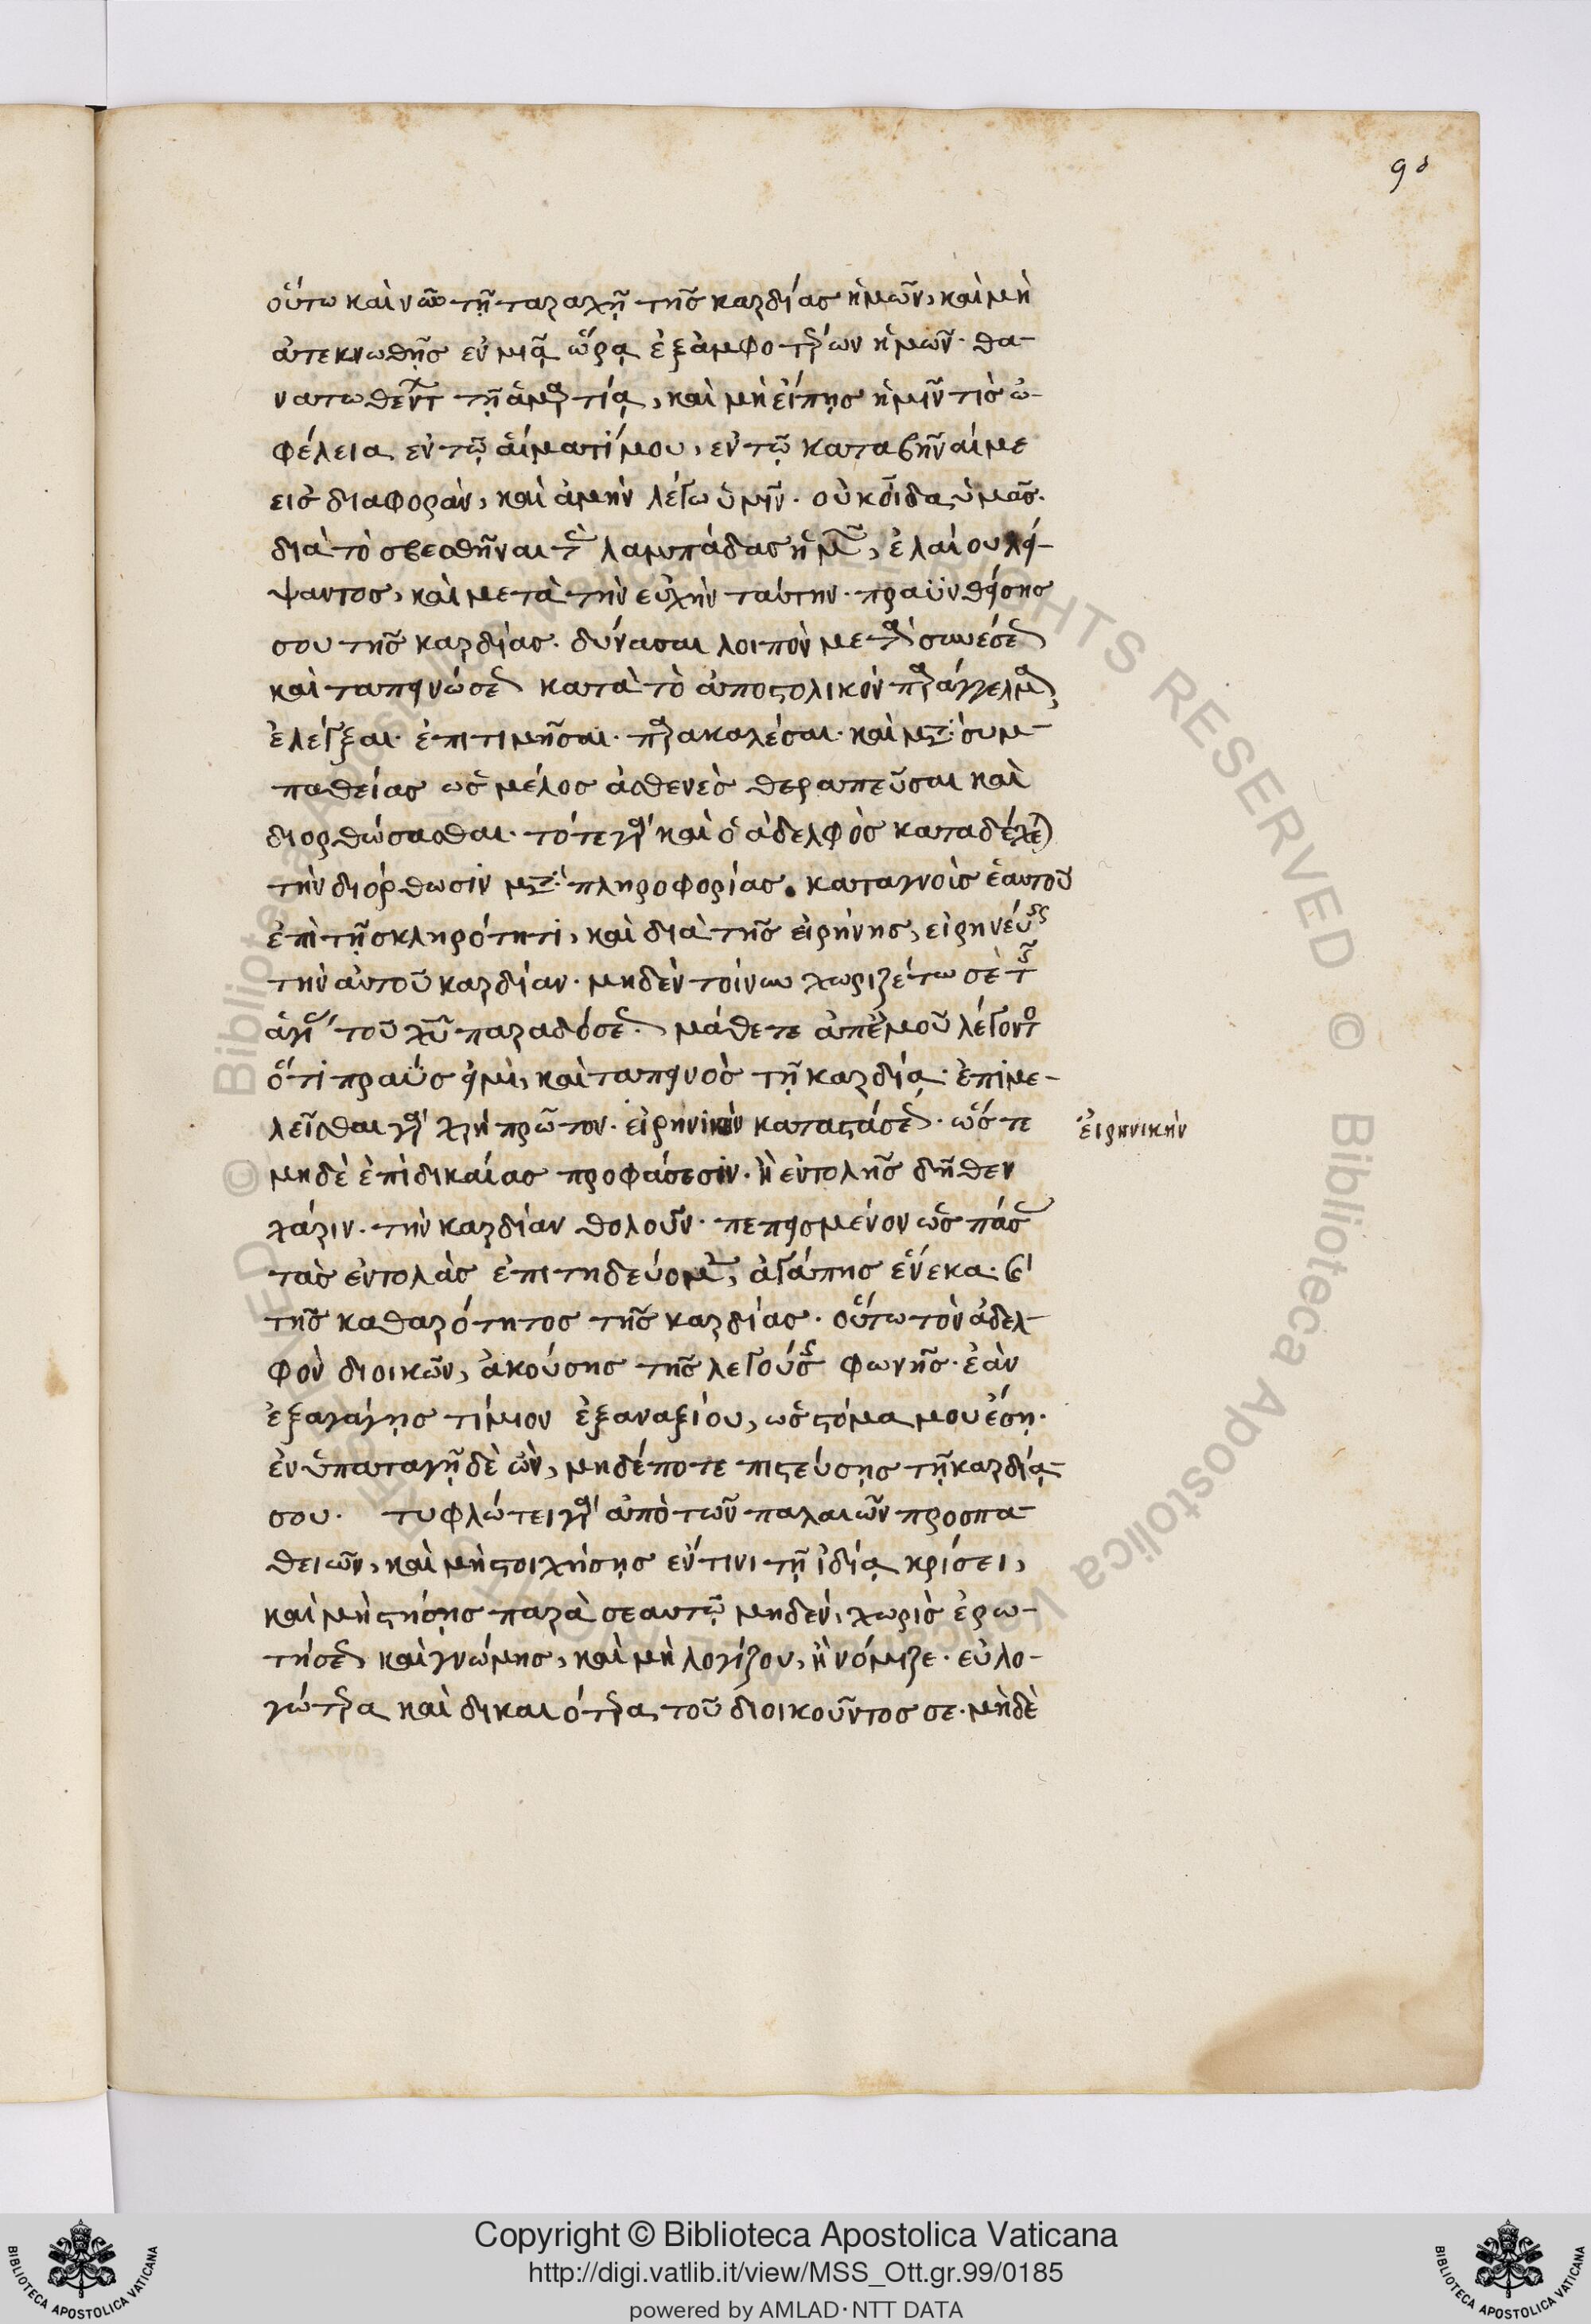 90
οὕτω καὶ νῦν τῇ ταραχῇ τῆς καρδίας ἡμῶν, καὶ μὴ
ἀτεκνωθῇς ἐν μιᾷ ὥρᾳ ἐξ ἀμφοτέρων ἡμῶν· θα-
νατωθέντων τῇ ἁμαρτίᾳ, καὶ μὴ εἴπῃς ἡμῖν τίς ὠ-
φέλεια ἐν τῷ αἵματί μου, ἐν τῷ καταβῆναί με
εἰς διαφοράν, καὶ ἀμὴν λέγω ὑμῖν· οὐκ οἶδα ὑμᾶς·
διὰ τὸ σβεσθῆναι τὰς λαμπάδας ἡμῶν, ἐλαίου λεί-
ψαντος, καὶ μετὰ τὴν εὐχὴν ταύτην· πραϋνθείσης
σου τῆς καρδίας· δύνασαι λοιπὸν μετὰ συνέσεως
καὶ ταπεινώσεως κατὰ τὸ ἀποστολικὸν παράγγελμα,
ἐλέγξαι· ἐπιτιμῆσαι· παρακαλέσαι· καὶ μετὰ συμ-
παθείας ὡς μέλος ἀσθενὲς θεραπεῦσαι καὶ
διορθώσασθαι· τότε γὰρ καὶ ὁ ἀδελφὸς καταδέχεται
τὴν διόρθωσιν μετὰ πληροφορίας. καταγνοὶς ἑαυτοῦ
ἐπὶ τῇ σκληρότητι, καὶ διὰ τῆς εἰρήνης, εἰρηνεύσεις
τὴν αὐτοῦ καρδίαν· μηδὲν τοίνυν χωριζέτω σὲ τῆς
ἁγίας τοῦ χυ παραδόσεως· μάθετε ἀπ' ἐμοῦ λέγοντος
ὅτι πραΰς εἰμι, καὶ ταπεινὸς τῇ καρδίᾳ· ἐπιμε-
λεῖσθαι γὰρ χρὴ πρῶτον· εἰρηνικὴν καταστάσεως· ὥστε
ἐιρηνικὴν
μηδὲ ἐπὶ δικαίας προφάσεσιν· ἢ ἐντολῆς δῆθεν
χάριν· τὴν καρδίαν θολοῦν· πεπεισμένον ὡς πάσας
τὰς ἐντολὰς ἐπιτηδεύομεν, ἀγάπης ἕνεκα· καὶ
τῆς καθαρότητος τῆς καρδίας· οὕτω τὸν ἀδελ-
φὸν διοικῶν, ἀκούσῃς τῆς λεγούσης φωνῆς· ἐὰν
ἐξαγάγῃς τίμιον ἐξ αναξίου, ὡς στόμα μου ἔσῃ·
ἐν ὑπαταγῇ δὲ ὤν, μηδέποτε πιστεύσῃς τῇ καρδίᾳ
σου· τυφλώτει γὰρ ἀπὸ τῶν παλαιῶν προσπα-
θειῶν, καὶ μὴ στοιχήσῃς ἔν τινι τῇ ἰδίᾳ κρίσει,
καὶ μὴ στήσῃς παρὰ σεαυτῷ μηδέν, χωρὶς ἐρω-
τήσεως καὶ γνώμης, καὶ μὴ λογίζου, ἢ νόμιζε· εὐλο-
γώτερα καὶ δικαιότερα, τοῦ διοικοῦντος σε· μηδὲ
Copyright © Biblioteca Apostolica Vaticana
http://digi.vatlib.it/view/MSS_Ott.gr.99/0185
powered by AMLAD·NTT DATA